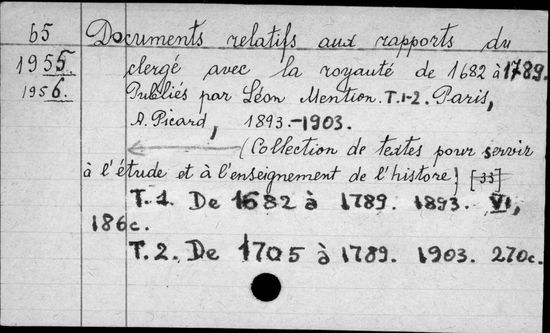 65 Documents relatifs aux rapports du
1955. clergé avec la royauté de 1682 à 1789.
1956. Publiés par Léon Mention. T.1-2. Paris,
A. Picard, 1893.-1903.
(Collection de textes pour servir
à l'étude et à l'enseignement de l'histore) [33]
T.1. De 1682 à 1789. 1893. VI,
186c.
T.2. De 1705 à 1789. 1903. 270c.